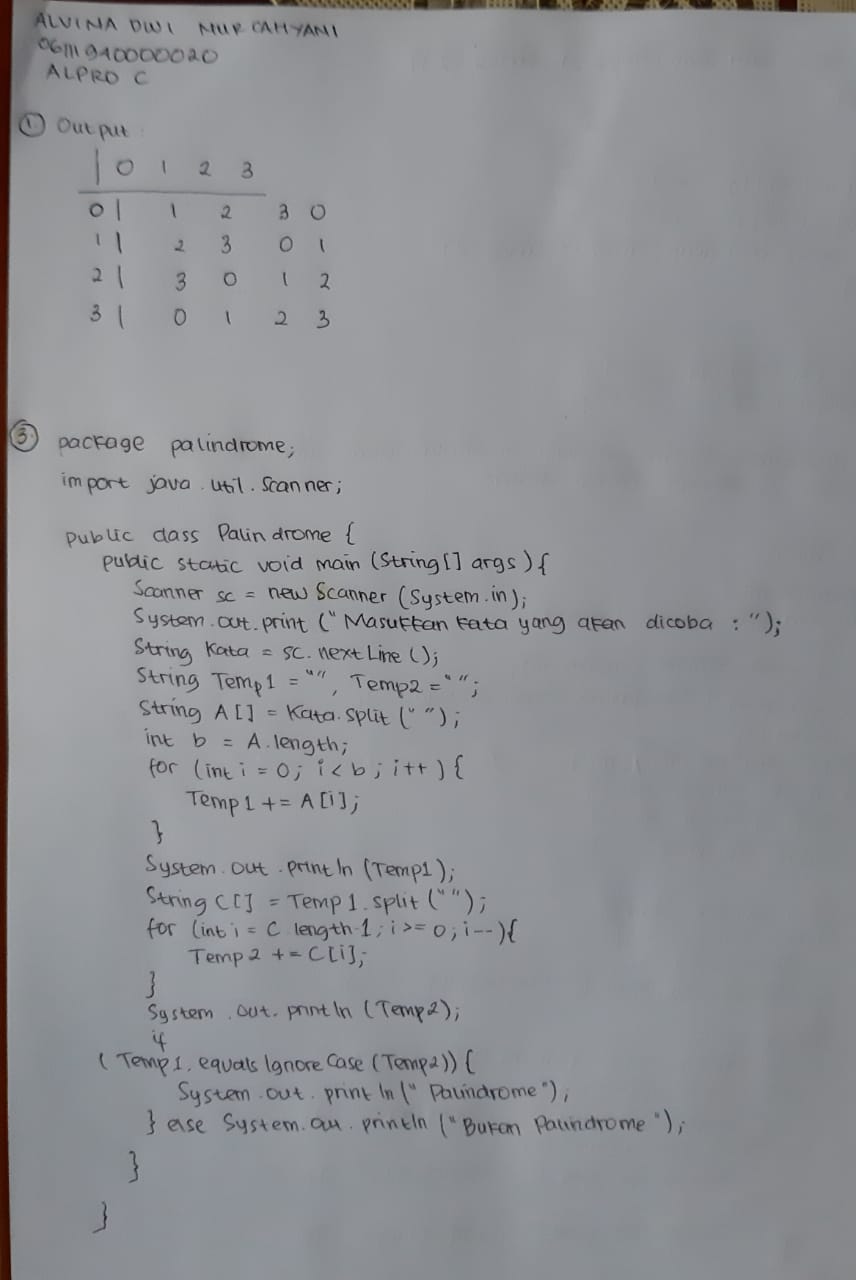 ALVINA DWI NUR CAHYANI
06111940000020
ALPRO C
① Output :
| 0 1 2 3
0 | 1 2 3 0
1 | 2 3 0 1
2 | 3 0 1 2
3 | 0 1 2 3
③ package palindrome;
import java.util.Scanner;
public class Palindrome {
public static void main (String[] args) {
Scanner sc = new Scanner (System.in);
System.out.print ("Masukkan kata yang akan dicoba : ");
String Kata = sc.nextLine ();
String Temp1 = "", Temp2 = "";
String A[] = Kata.split ("");
int b = A.length;
for (int i = 0; i < b; i++) {
Temp1 += A[i];
}
System.out.println (Temp1);
String C[] = Temp1.split ("");
for (int i = C length-1; i >= 0; i--) {
Temp2 += C[i];
}
System.out.println (Temp2);
if
( Temp1.equalsIgnoreCase (Temp2)) {
System.out.println (" Palindrome");
} else System.ou.println ("Bukan Palindrome ");
}
}